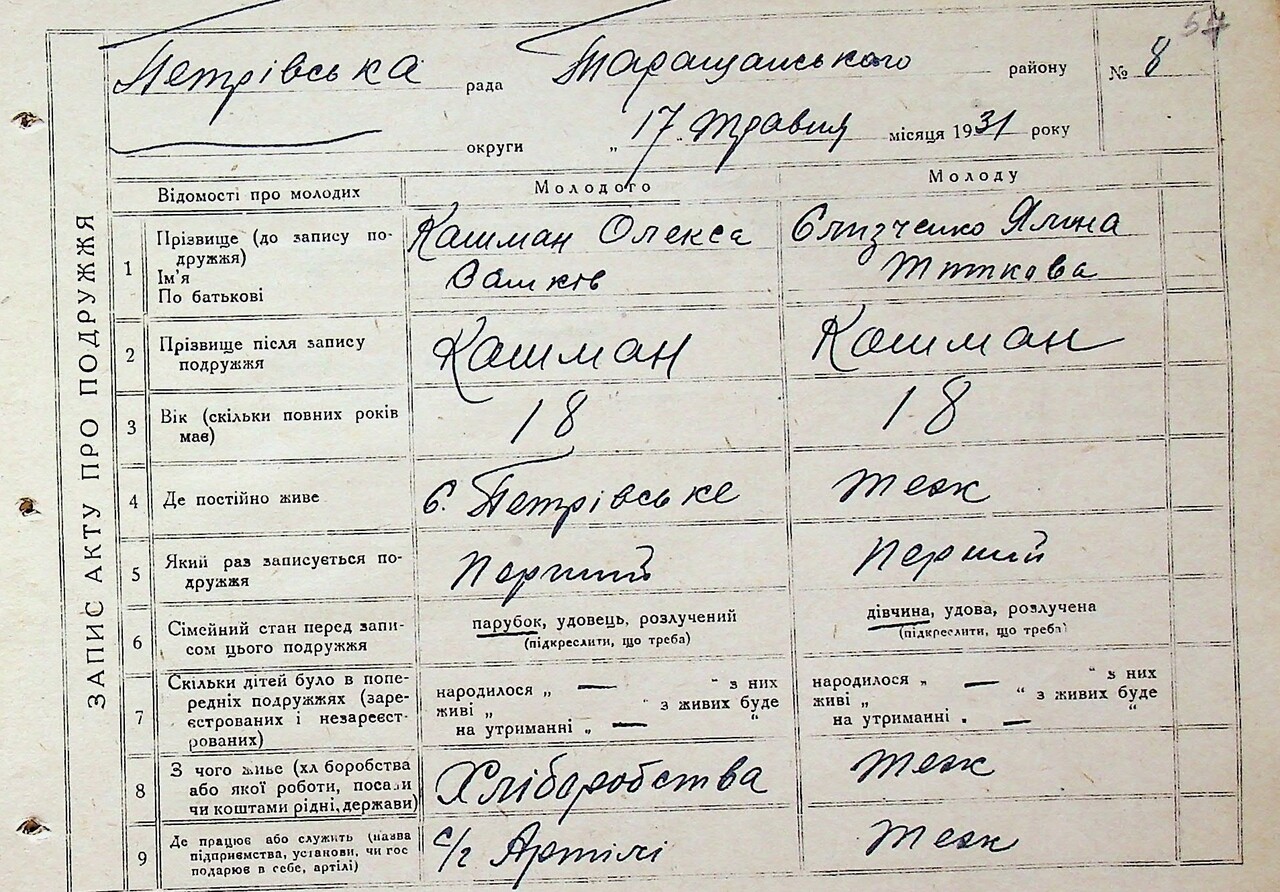 57
Петрівська рада Таращанського району № 8
округи „ 17 " травня місяця 1931 року
ЗАПИС АКТУ ПРО ПОДРУЖЖЯ
Відомості про молодих Молодого Молоду
1 Прізвище (до запису по-
дружжя)
Ім'я
По батькові
Кашман Олекса
Єлизченко Ялина
2 Прізвище після запису
подружжя
Кашман Кашман
3 Вік (скільки повних років
має)
18 18
4 Де постійно живе с. Петрівське теж
5 Який раз записується по-
дружжя
перший перший
6 Сімейний стан перед запи-
сом цього подружжя
парубок, удовець, розлучений
(підкреслити, що треба)
дівчина, удова, розлучена
(підкреслити, що треба)
7 Скільки дітей було в попе-
редніх подружжях (заре-
єстрованих і незареєст-
рованих)
народилося „ — " з них
живі „ " з живих буде
на утриманні „ — "
народилося „ — " з них
живі „ " з живих буде
на утриманні „ — "
8 З чого живе (хл боробства
або якої роботи, посади
чи коштами рідні, держави)
Хліборобства теж
9 Де працює або служить (назва
підприємства, установи, чи гос
подарює в себе, артілі)
с/г Артілі теж